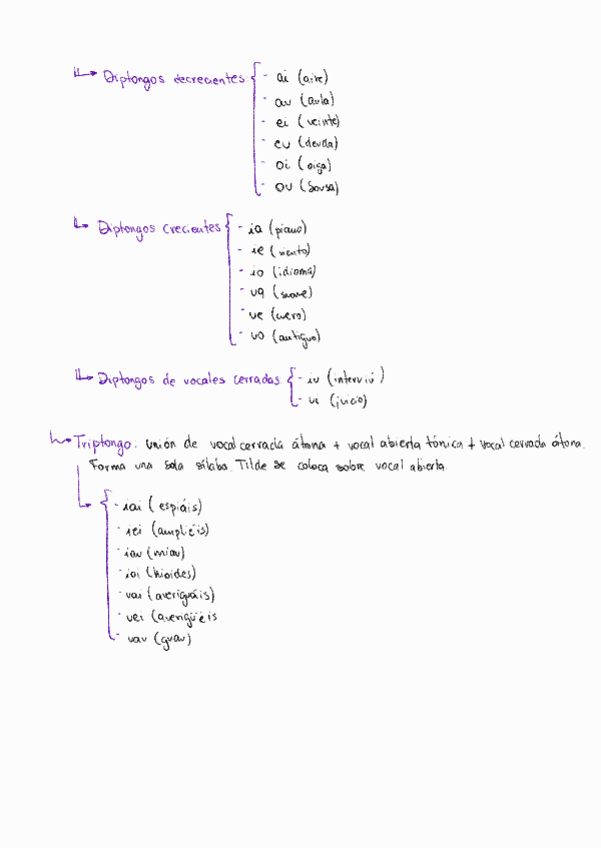 Diptongos decrecientes - ai (aire)
- au (aula)
- ei (veinte)
- eu (deuda)
- oi (oiga)
- ou (Sousa)
Diptongos crecientes - ia (piano)
- ie (viento)
- io (idioma)
- ua (suave)
- ue (cuero)
- uo (antiguo)
Diptongos de vocales cerradas - iu (interviú)
- ui (juicio)
Triptongo. unión de vocal cerrada átona + vocal abierta tónica + vocal cerrada átona.
Forma una sola sílaba. Tilde se coloca sobre vocal abierta.
- iai (espiáis)
- iei (ampliéis)
- iau (miau)
- ioi (hioides)
- uai (averiguáis)
- uei (averigüéis
- uau (guau)